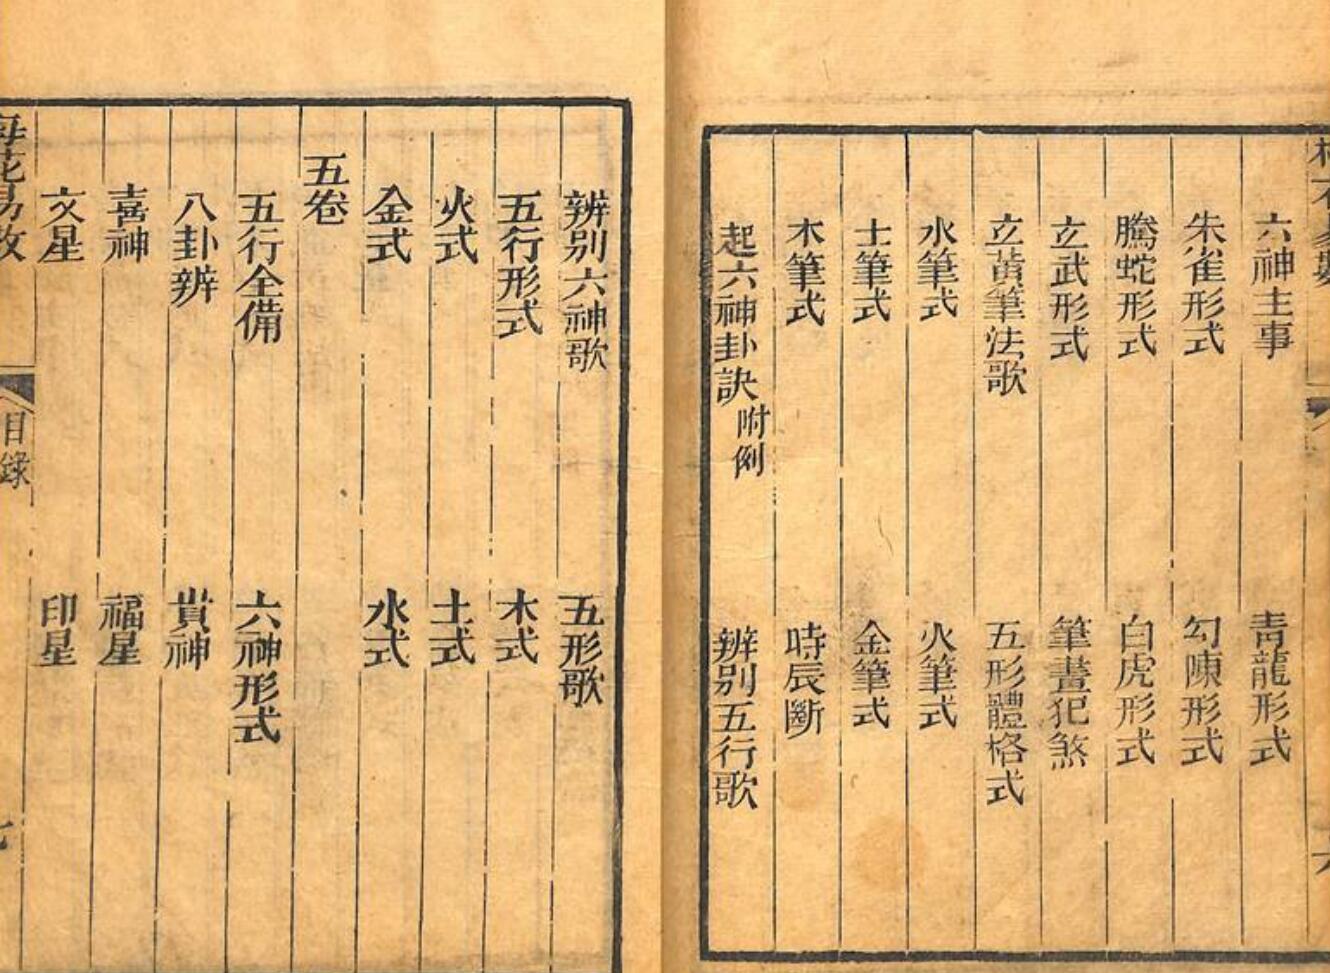 六神主事　青龍形式
朱雀形式　勾陳形式
騰蛇形式　白虎形式
立武形式　筆畫犯煞
立黃筆法歌　五形體格式
水筆式　火筆式
士筆式　金筆式
木筆式　時辰斷
起六神卦訣附例　辨別五行歌
辨別六神歌　五形歌
五行形式　木式
火式　土式
金式　水式
五卷
五行全備　六神形式
八卦辨　貴神
喜神　福星
文星　印星
目錄